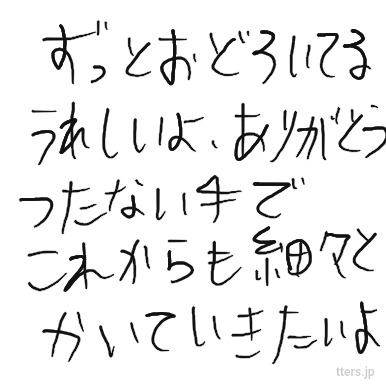 ずっとおどろいてる
うれしいよ、ありがとう
つたない手で
これからも細々と
かいていきたいよ
tters.jp